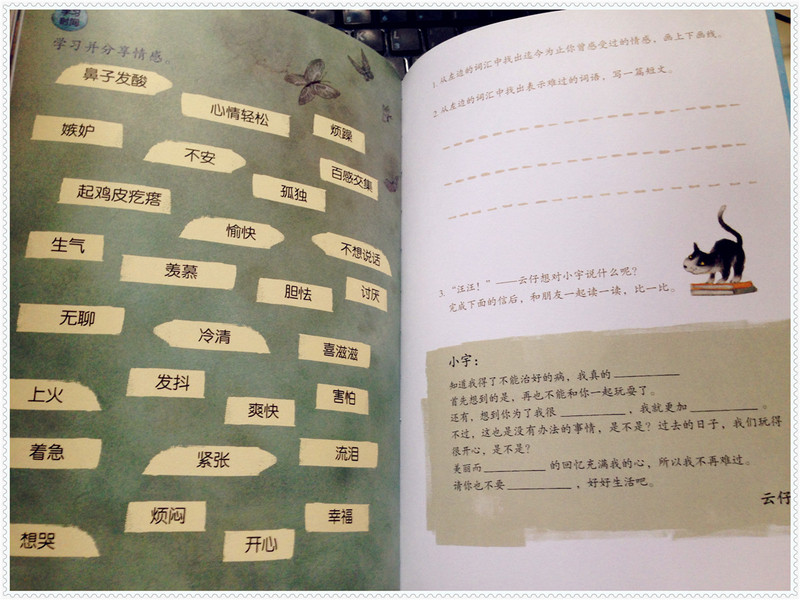 学习
时间
学习并分享情感。
鼻子发酸
心情轻松
烦躁
嫉妒
不安
百感交集
起鸡皮疙瘩
孤独
愉快
不想说话
生气
羡慕
胆怯
讨厌
无聊
冷清
喜滋滋
上火
发抖
爽快
害怕
着急
紧张
流泪
烦闷
幸福
想哭
开心
1. 从左边的词汇中找出迄今为止你曾感受过的情感，画上下画线。
2. 从左边的词汇中找出表示难过的词语，写一篇短文。
3. “汪汪！”——云仔想对小宇说什么呢？
完成下面的信后，和朋友一起读一读，比一比。
小宇：
知道我得了不能治好的病，我真的__________
首先想到的是，再也不能和你一起玩耍了。
还有，想到你为了我很__________，我就更加__________。
不过，这也是没有办法的事情，是不是？过去的日子，我们玩得
很开心，是不是？
美丽而__________的回忆充满我的心，所以我不再难过。
请你也不要__________，好好生活吧。
云仔